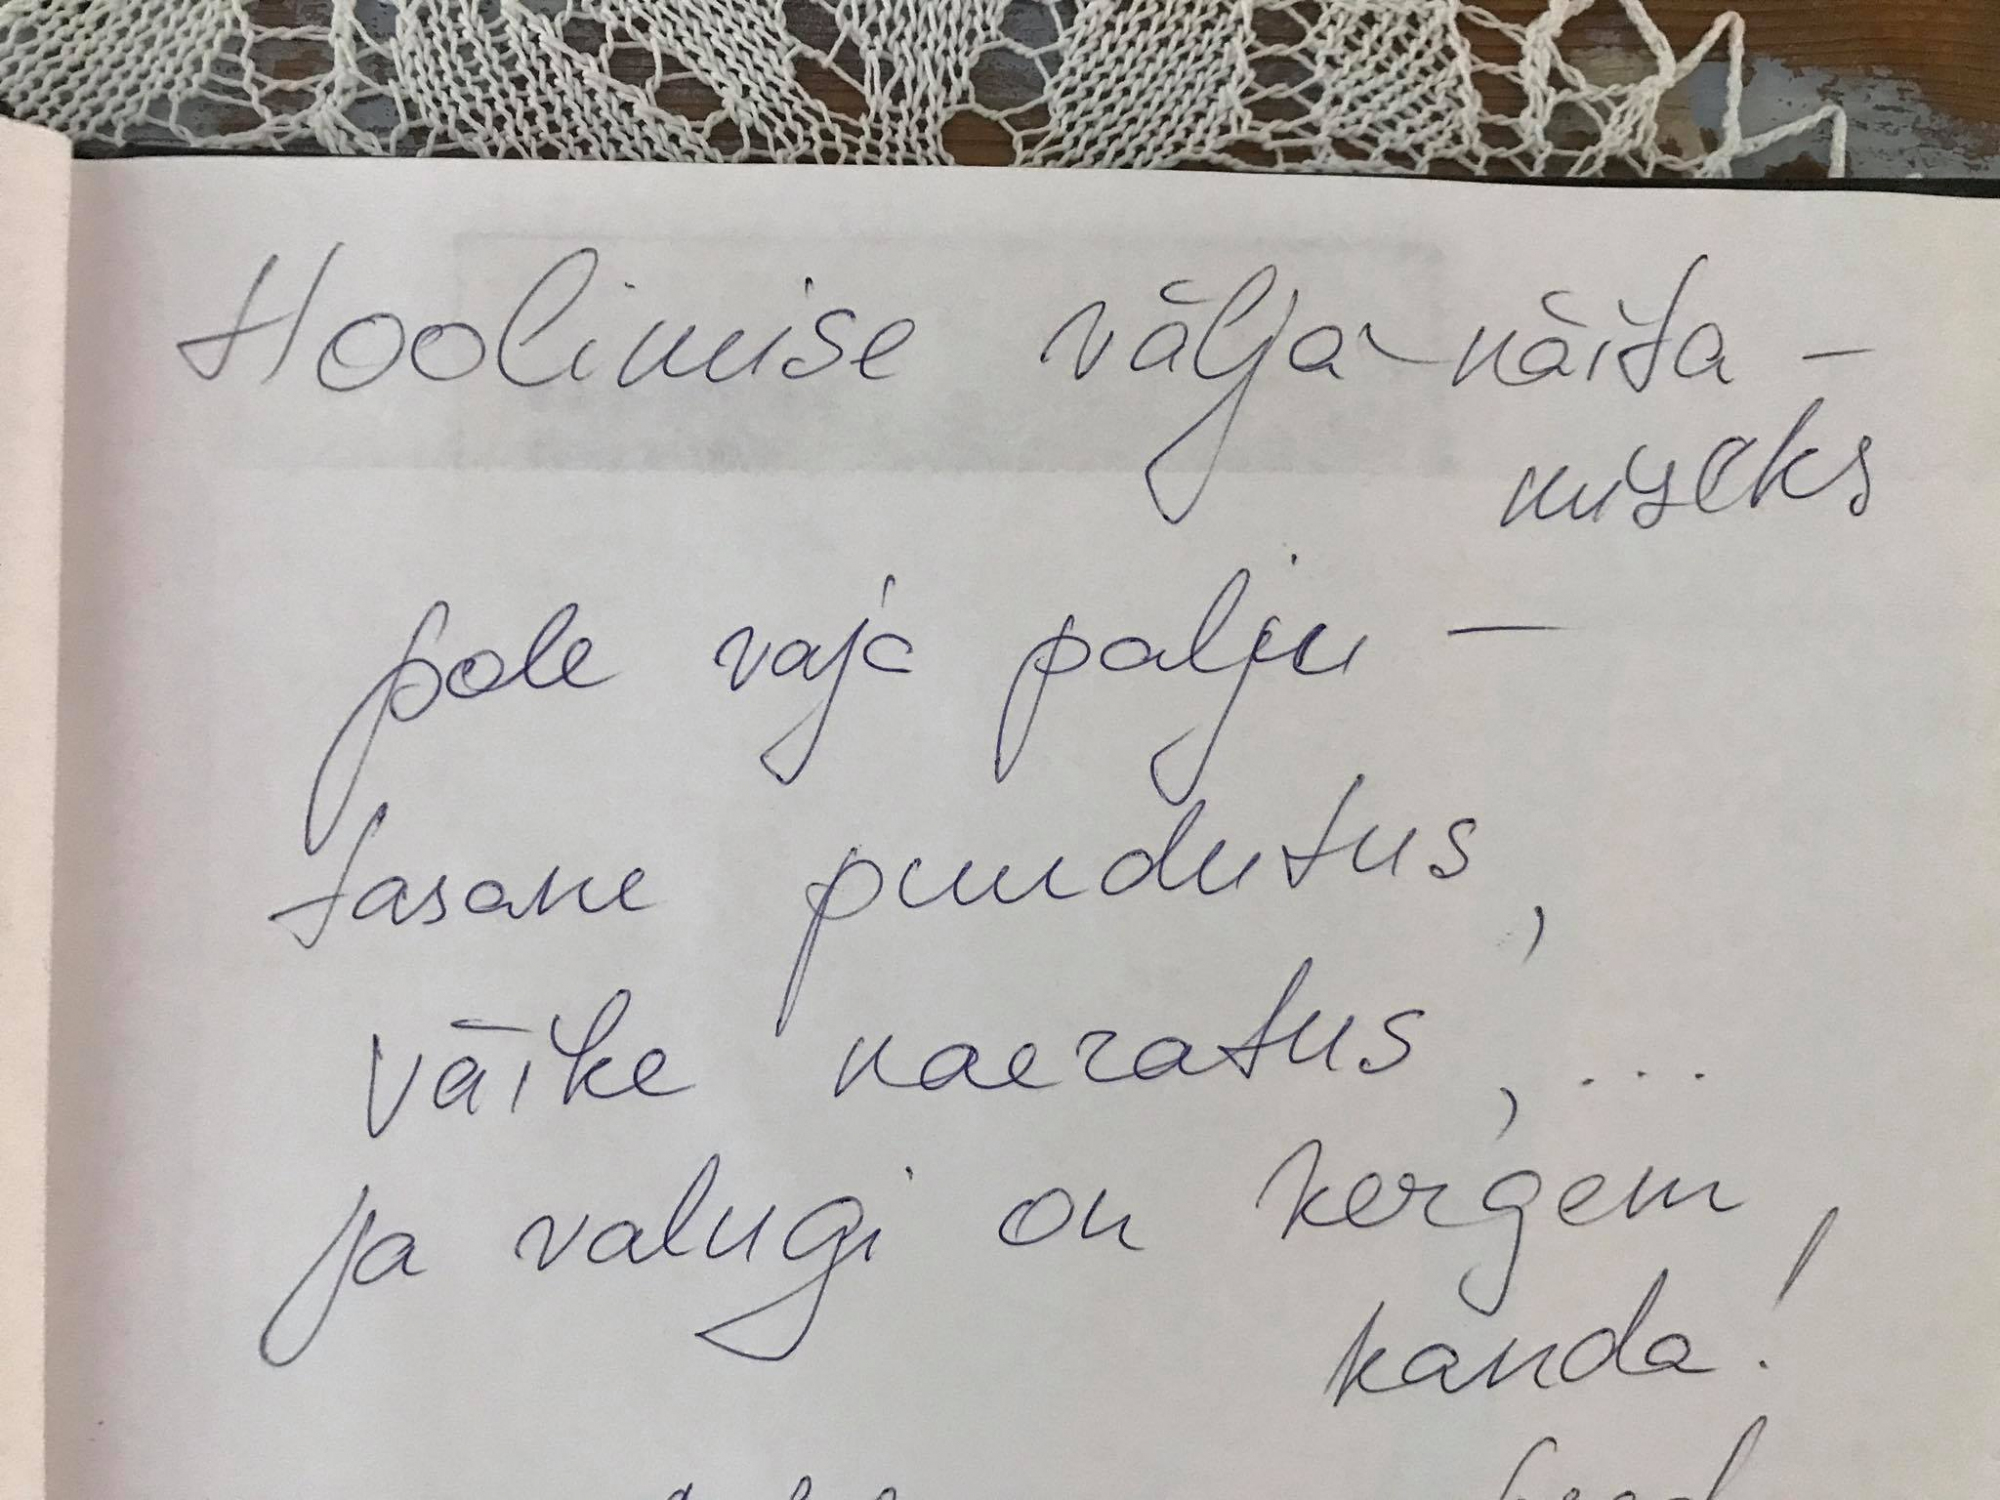 Hoolimise välja-näita-
miseks
pole vaja palju —
tasane puudutus,
väike naeratus, ...
ja valugi on kergem
kanda!